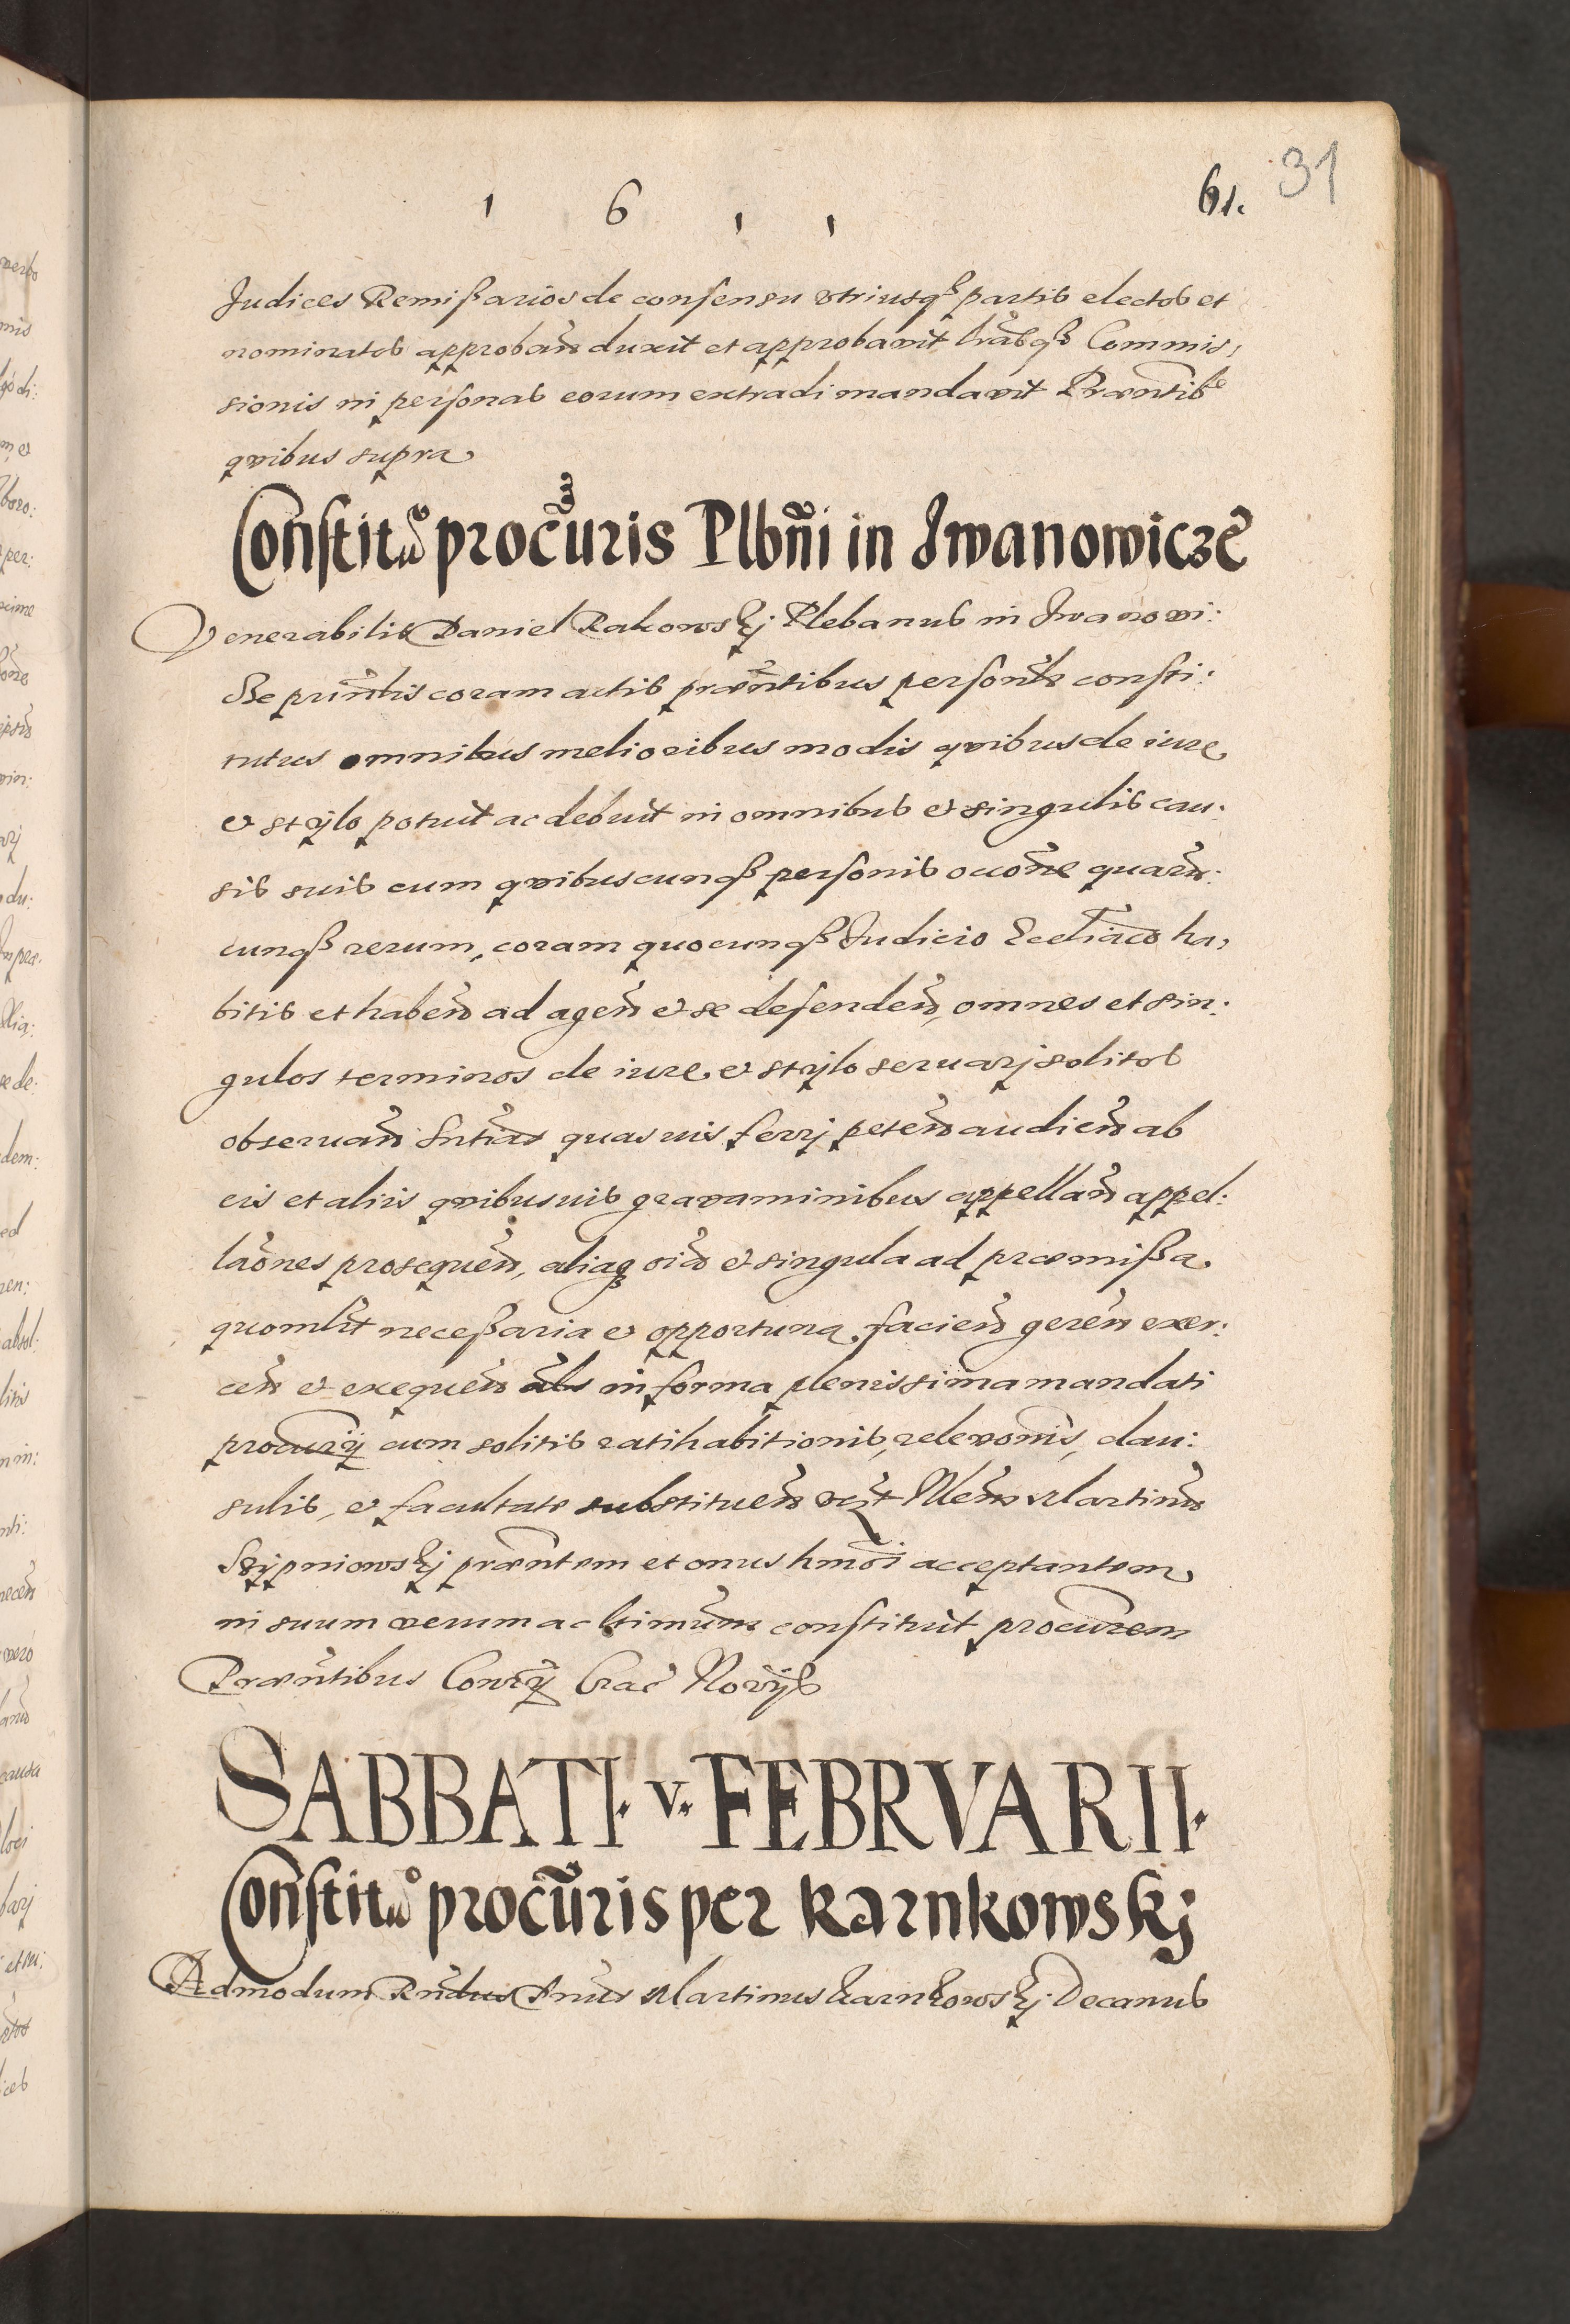 1 6 1 1
61. 31
Judices Remißarios de consensu vtriusq3 partis electos et
nominatos approban̄ duxit et approbavit lrāsq3 Commis,
sionis in personas eorum extradi mandavit Præntib9
quibus supra
Constituo procūris Plbñi in Jwanowicze
Venerabilis Daniel Rakowskj Plebanus in Jwanowi:
cze prin̄lis coram actis præn̄tibus person̄lr consti:
tutus omnibus melioribus modis quibus de iure
et stÿlo potuit ac debuit in omnibus et singulis cau:
sis suis cum quibuscunqß personis occōne quarū:
cunqß rerum, coram quocunqß Judicio Ecclīāco ha,
bitis et haben̄ ad agen̄ et se defenden̄, omnes et sin:
gulos terminos de iure et stÿlo seruarj solitos
obseruan̄ Sntīās quasuis ferrj peten̄ audien̄ ab
eis et aliis quibusuis grauaminibus appellan̄ appel:
lāones prosequen̄, aliaq3 oīa et singula ad præmißa
quomlīt neceßaria et opportuna facien̄ geren̄ exer:
cen̄ et exequen̄ als in forma plenissima mandati
procurÿ cum solitis ratihabitionis, relevōnis, clau:
sulis, et facultate substituen̄ vz̄t Nlem̄ Martinū
Skÿpniowskj præn̄tem et onus hmōi acceptantem
in suum verum ac ltimūm constituit procūrem
Præn̄tibus Conrÿ Crac̄ Norÿs
SABBATI· V· FEBRVARII·
Constituo procūris per Karnkowskj
Admodum Rn̄dus Dnūs Martinus Karnkowskj Decanus